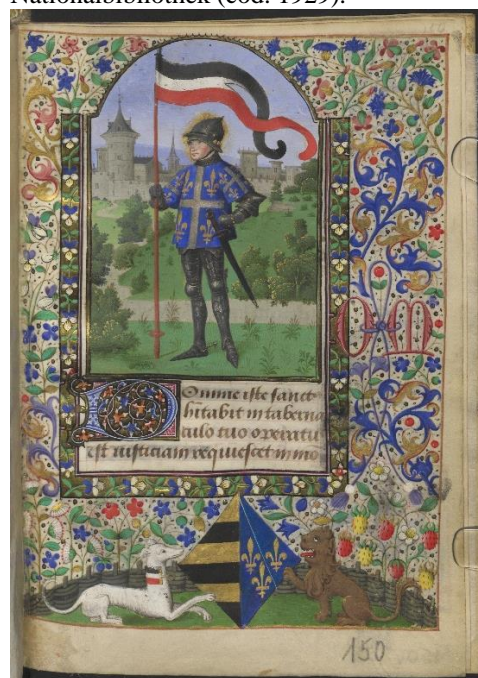 Nationalbibliothek (cod. 1929).
Domine iste sanct
hitabit in taberna
culo tuo operatu
est iusticiam requiescet in mo
150